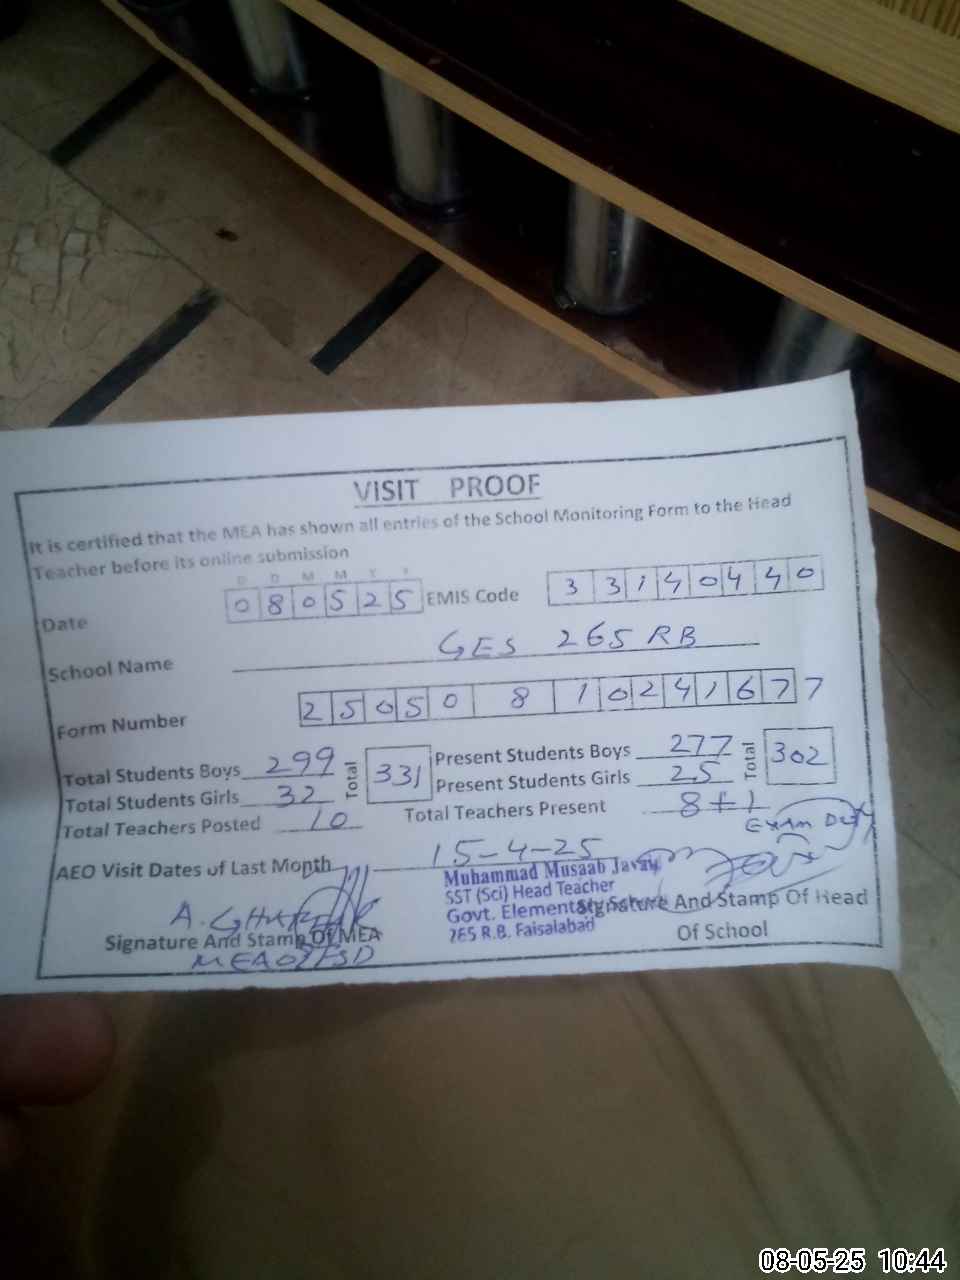 VISIT PROOF
It is certified that the MEA has shown all entries of the School Monitoring Form to the Head
Teacher before its online submission
D D M M Y Y
Date 080525 EMIS Code 33140440
School Name GES 265 RB
Form Number 25050810241677
Total Students Boys 299 Total 331 Present Students Boys 277 Total 302
Total Students Girls 32 Present Students Girls 25
Total Teachers Posted 10 Total Teachers Present 8+1
Exam Duty
AEO Visit Dates of Last Month 15-4-25
Muhammad Musaab Javaid
SST (Sci) Head Teacher
Govt. Elementary School
265 R.B. Faisalabad
A. GHAFFAR
Signature And Stamp Of MEA
MEA 07 FSD
Signature And Stamp Of Head
Of School
08-05-25 10:44